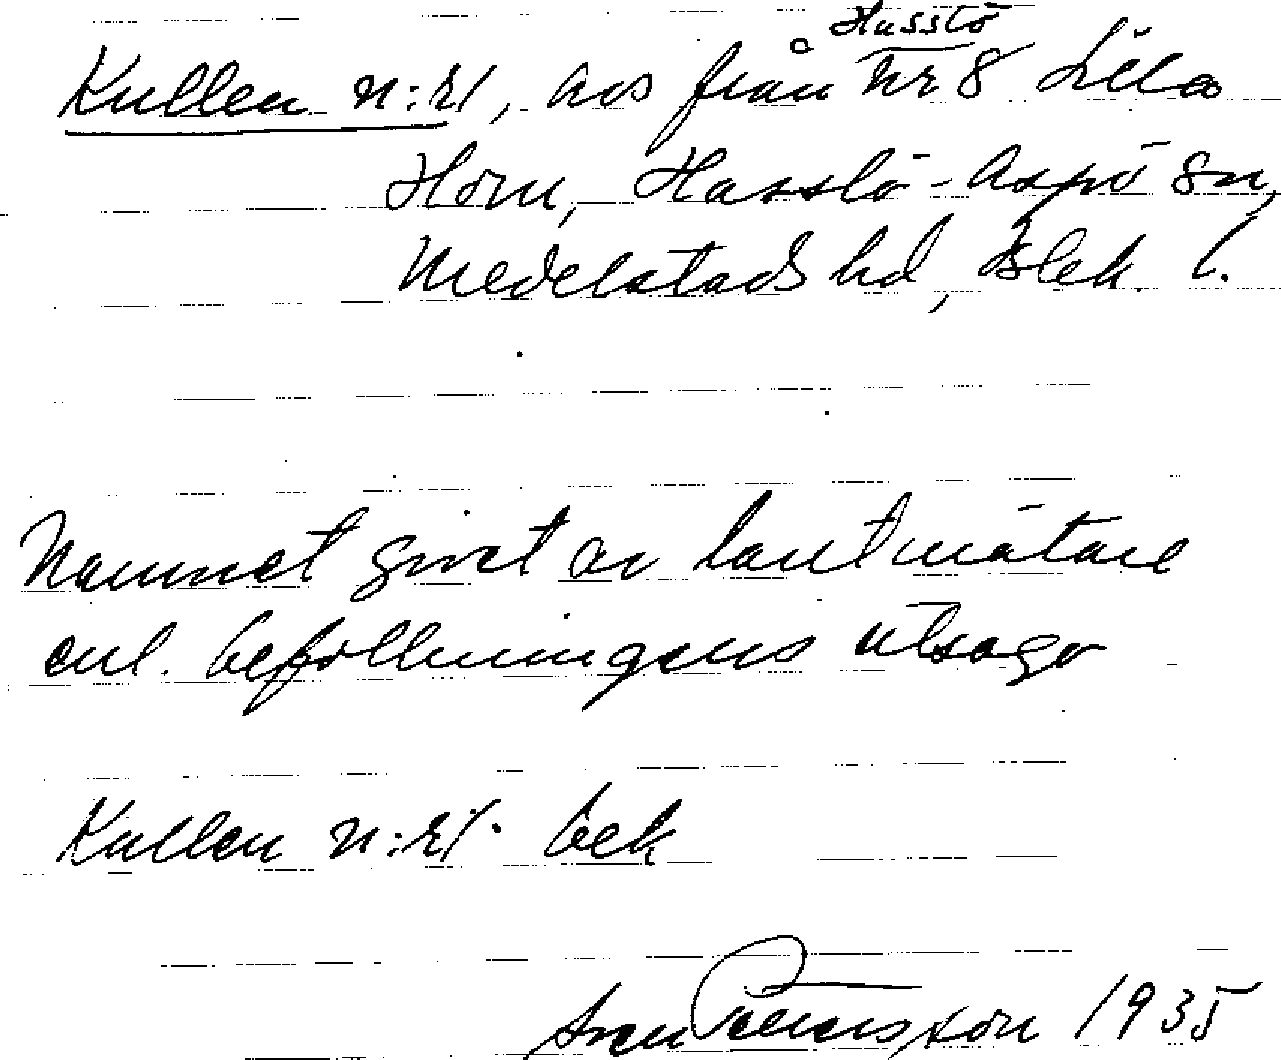 Hasslö
Kullen n:r 1, avs från Nr 8 Lilla
Horn, Hasslö-Aspö sn,
Medelstads hd, Blek. l.
Namnet givet av lantmätare
enl. befolkningens utsago
Kullen n:r 1. bek
Sven Petersson 1935